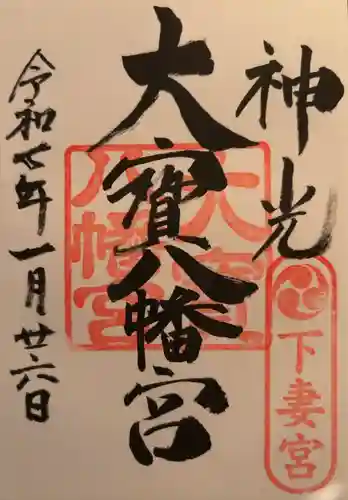 神光
下妻宮
大寳八幡宮
大寳八幡宮
令和七年一月廿六日